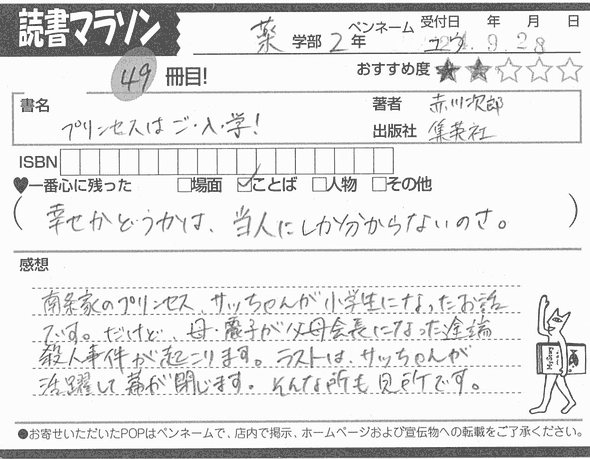 読書マラソン
薬 学部 2年
ペンネーム ユウ
受付日 年 月 日
24.9.28
49 冊目!
おすすめ度 ★★☆☆☆
書名
プリンセスはご・入・学!
著者 赤川次郎
出版社 集英社
ISBN
♥一番心に残った □場面 ☑ことば □人物 □その他
(幸せかどうかは、当人にしか分からないのさ。)
感想
南条家のプリンセス、サッちゃんが小学生になったお話
です。だけど、母・麗子が父母会長になった途端
殺人事件が起こります。ラストは、サッちゃんが
活躍して幕が閉じます。そんな所も見所です。
●お寄せいただいたPOPはペンネームで、店内で掲示、ホームページおよび宣伝物への転載をご了承ください。